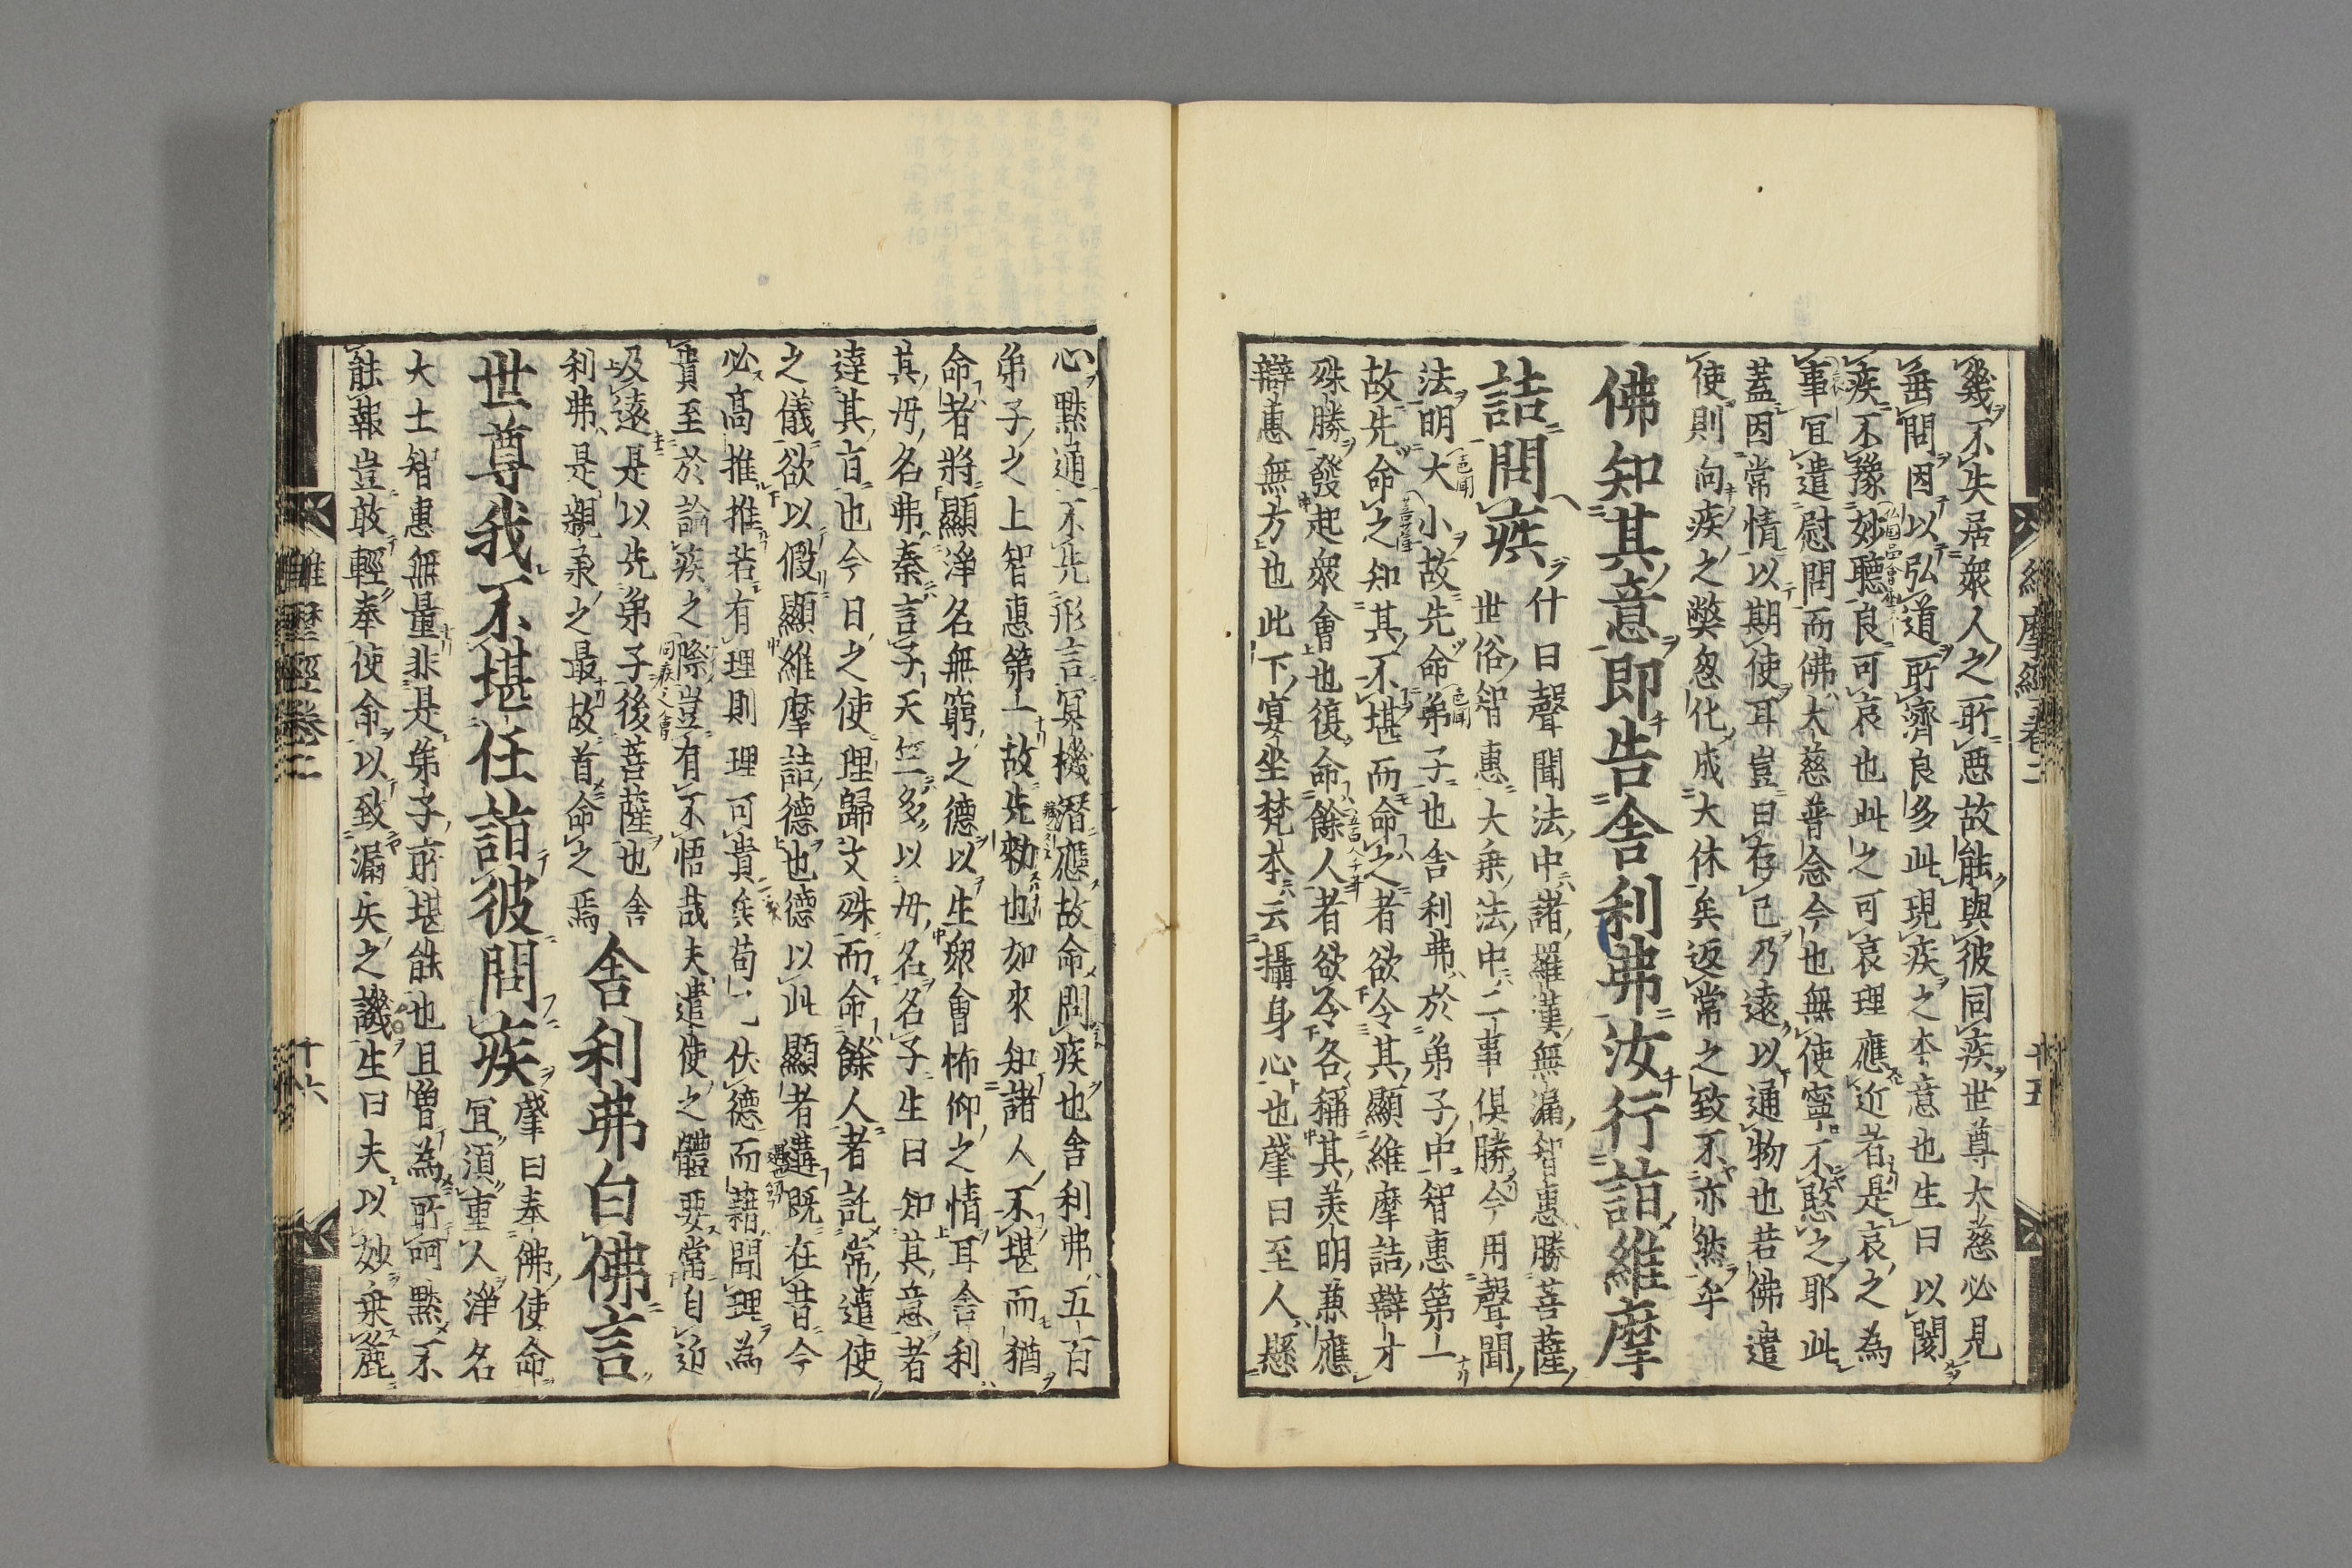 幾不失居衆人之所悪故能與彼同疾世尊大慈必見
垂問因以弘道所濟良多此現疾之本意也生曰以闕
疾不豫妙聽良可哀也此之可哀理應近者是哀之為
事冝遣慰問而佛大慈普念今也無使寧不愍之耶此
蓋因常情以期使耳豈曰存己乃遠以通物也若佛遣
使則向疾之弊忽化成大休矣返常之致不亦然乎
佛知其意即告舎利弗汝行詣維摩
詰問疾 什曰聲聞法中諸羅漢無漏智惠勝菩薩
世俗智惠大乗法中二事倶勝今用聲聞
法明大小故先命弟子也舎利弗於弟子中智惠第一
故先命之知其不堪而命之者欲令其顯維摩詰辯才
殊勝發起衆會也復命餘人者欲令各稱其美明兼應
辯惠無方也此下宴坐梵本云攝身心也肇曰至人懸
心黙通不先形言冥機潜應故命問疾也舎利弗五百
弟子之上智惠第一故先勅也如來知諸人不堪而猶
命者將顯淨名無窮之德以生衆會怖仰之情耳舎利
其母名弗秦言子天竺多以母名名子生曰知其意者
達其㫖也今日之使理歸文殊而命餘人者託常遣使
之儀欲以假顯維摩詰德也德以此顯者遘既在昔今
必高推推若有理則理可貴矣苟伏德而藉聞理為
貴至於論疾之際豈有不悟哉夫遣使之體要當自近
及遠是以先弟子後菩薩也舎
利弗是親承之最故首命之焉 舎利弗白佛言
世尊我不堪任詣彼問疾 肇曰奉佛使命
冝須重人淨名
大士智惠無量非是弟子所堪能也且曽為所呵黙不
能報豈敢輕奉使命以致漏失之譏生曰夫以妙乗麁
維摩經卷二
十五
維摩經卷二
十六